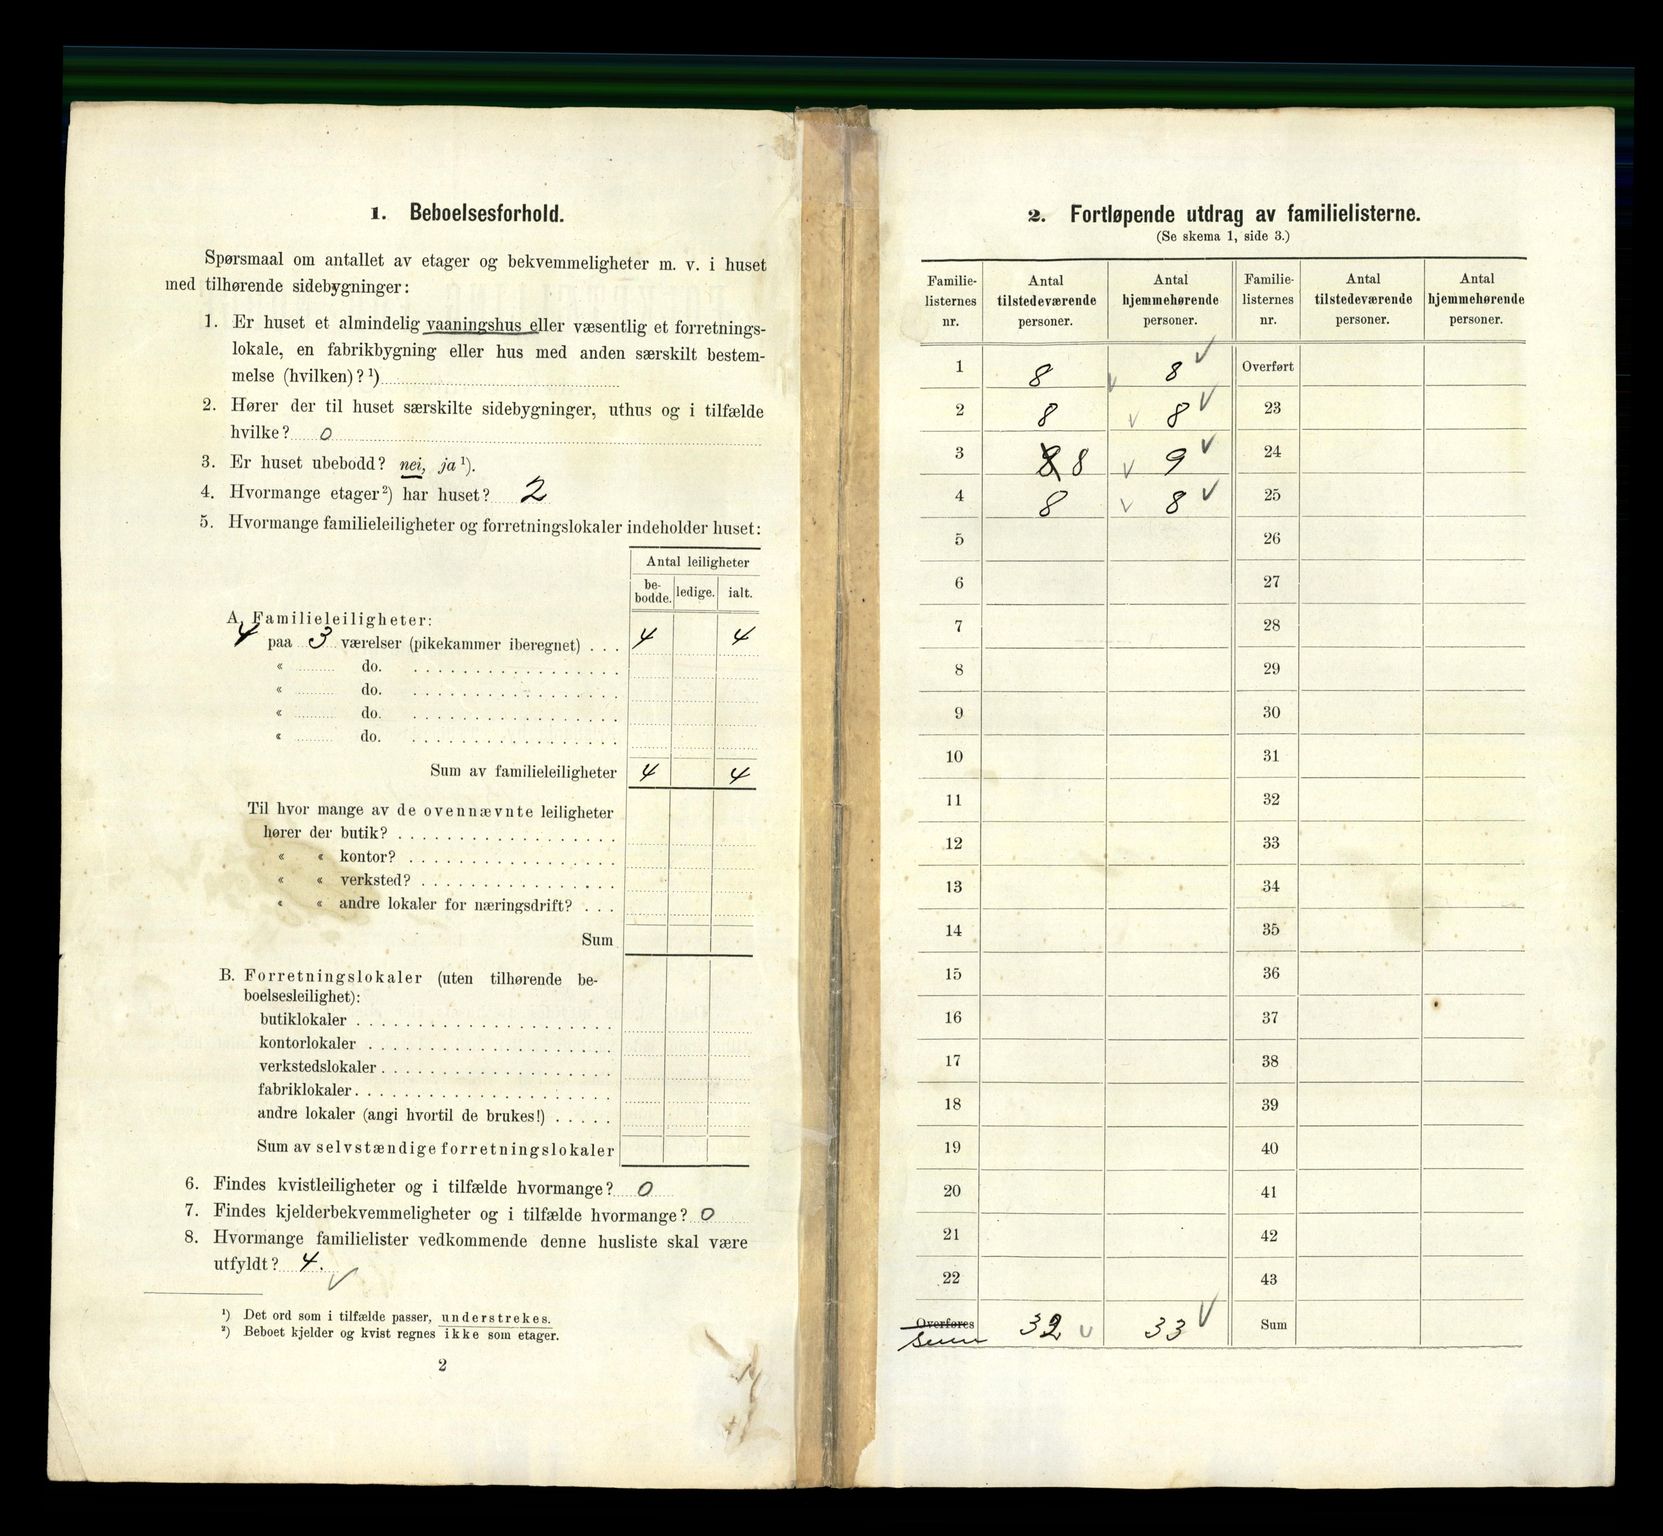 1. Beboelsesforhold.
Spørsmaal om antallet av etager og bekvemmeligheter m. v. i huset
med tilhørende sidebygninger:
1. Er huset et almindelig vaaningshus eller væsentlig et forretnings-
lokale, en fabrikbygning eller hus med anden særskilt bestem-
melse (hvilken)? ¹)
2. Hører der til huset særskilte sidebygninger, uthus og i tilfælde
hvilke? 0
3. Er huset ubebodd? nei, ja ¹).
4. Hvormange etager ²) har huset? 2
5. Hvormange familieleiligheter og forretningslokaler indeholder huset:
Antal leiligheter
be-
bodde. ledige. ialt.
A. Familieleiligheter:
4 paa 3 værelser (pikekammer iberegnet) . . . 4 4
« do.
« do.
« do.
« do.
Sum av familieleiligheter 4 4
Til hvor mange av de ovennævnte leiligheter
hører der butik?
« « kontor?
« « verksted?
« « andre lokaler for næringsdrift? . . .
Sum
B. Forretningslokaler (uten tilhørende be-
boelsesleilighet):
butiklokaler
kontorlokaler
verkstedslokaler
fabriklokaler
andre lokaler (angi hvortil de brukes!)
Sum av selvstændige forretningslokaler
6. Findes kvistleiligheter og i tilfælde hvormange? 0
7. Findes kjelderbekvemmeligheter og i tilfælde hvormange? 0
8. Hvormange familielister vedkommende denne husliste skal være
utfyldt? 4.
¹) Det ord som i tilfælde passer, understrekes.
²) Beboet kjelder og kvist regnes ikke som etager.
2
2. Fortløpende utdrag av familielisterne.
(Se skema 1, side 3.)
Familie- Antal Antal Familie- Antal Antal
listernes tilstedeværende hjemmehørende listernes tilstedeværende hjemmehørende
nr. personer. personer. nr. personer. personer.
1 8 8 Overført
2 8 8 23
3 9 8 9 24
4 8 8 25
5 26
6 27
7 28
8 29
9 30
10 31
11 32
12 33
13 34
14 35
15 36
16 37
17 38
18 39
19 40
20 41
21 42
22 43
Overføres 32 33 Sum
Sum